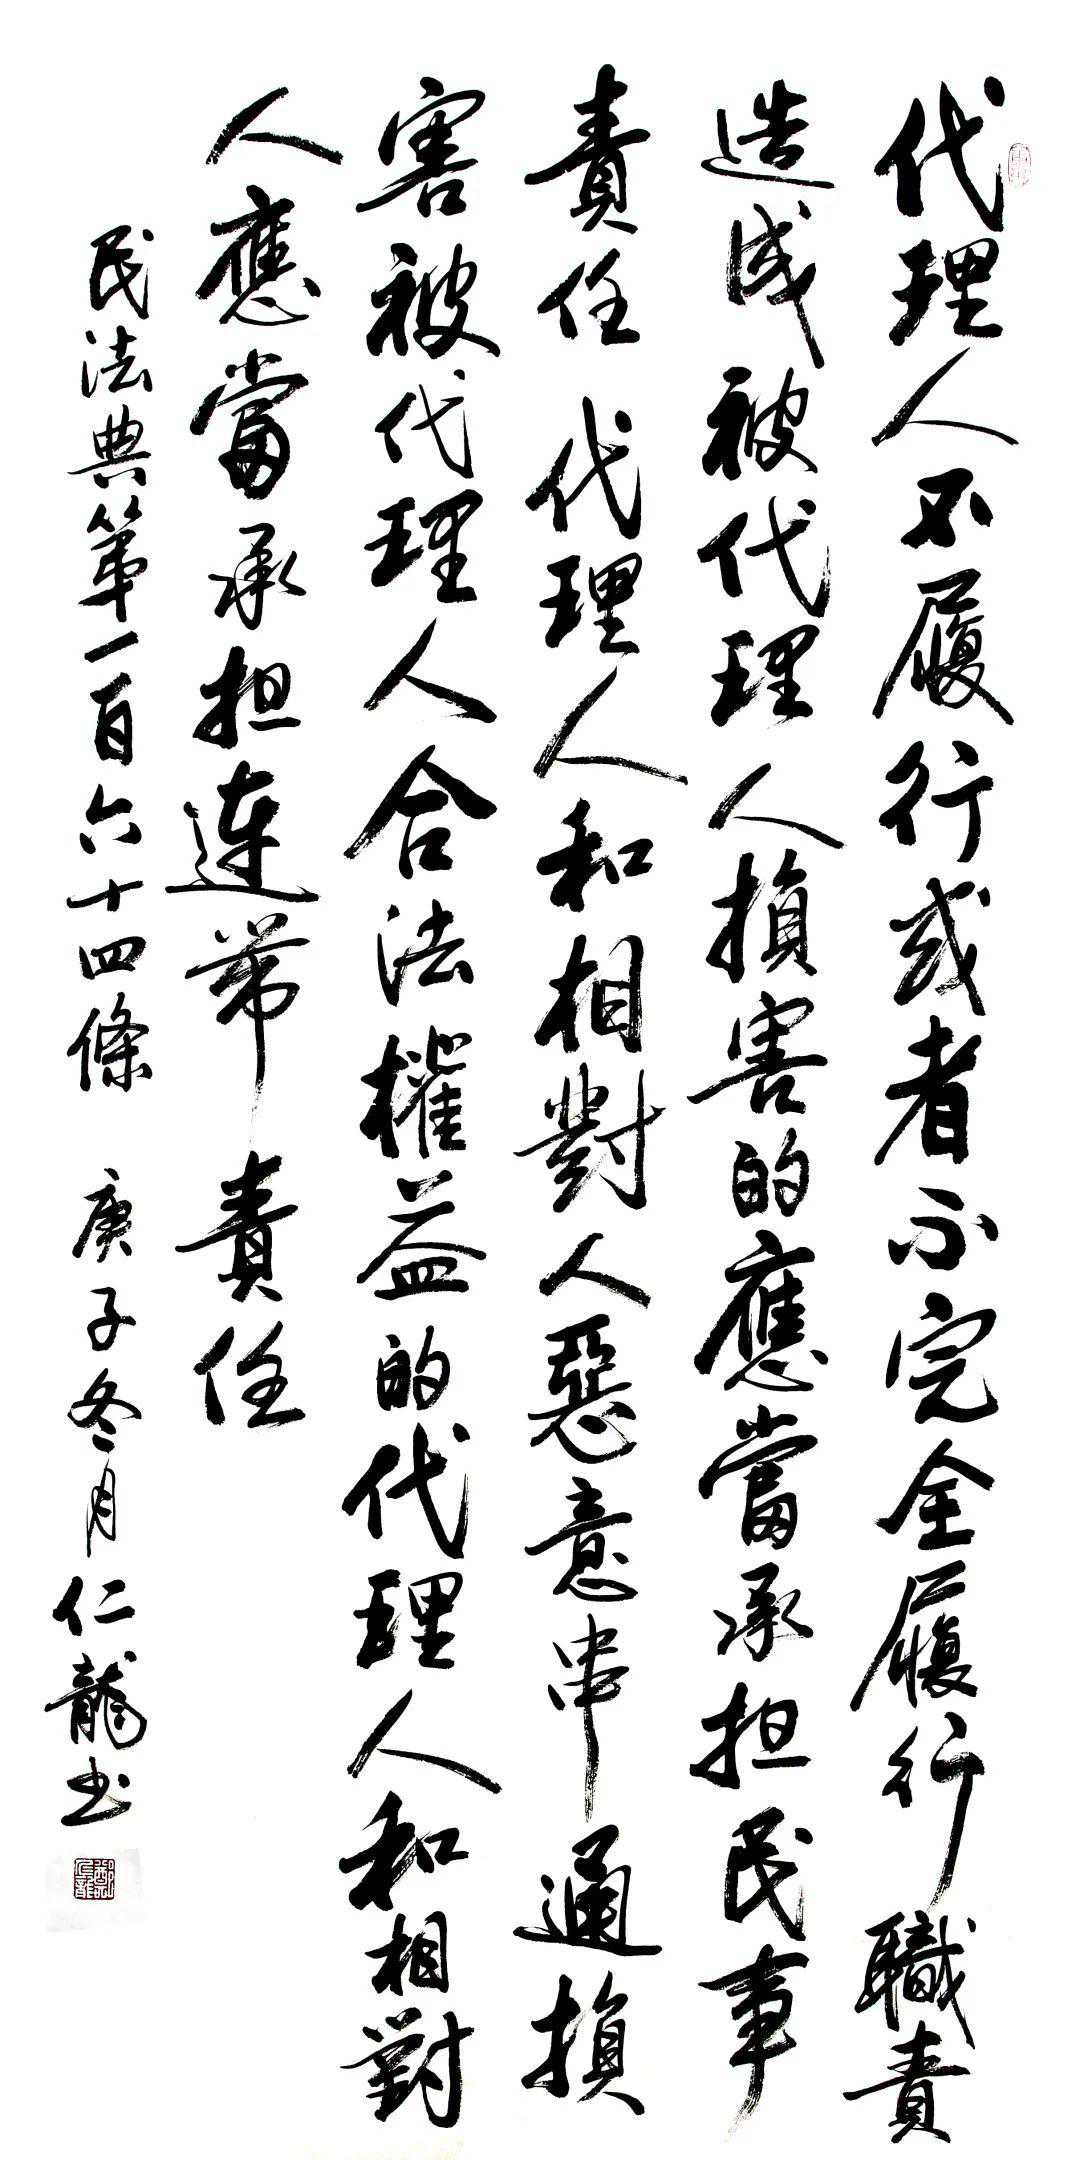 代理人不履行或者不完全履行職責
造成被代理人損害的應當承担民事
責任代理人和相對人惡意串通損
害被代理人合法權益的代理人和相對
人應當承担連帶責任
民法典第一百六十四條 庚子冬月仁龍书